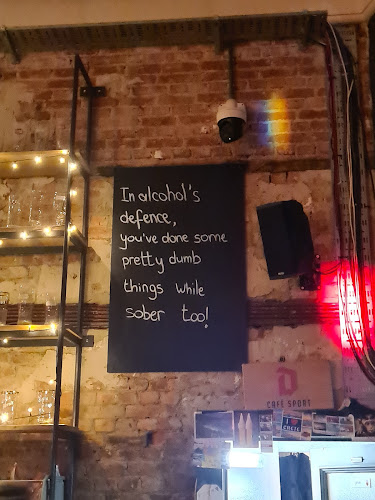 In alcohol's
defence,
you've done some
pretty dumb
things while
sober too!
D
CAFÉ SPORT